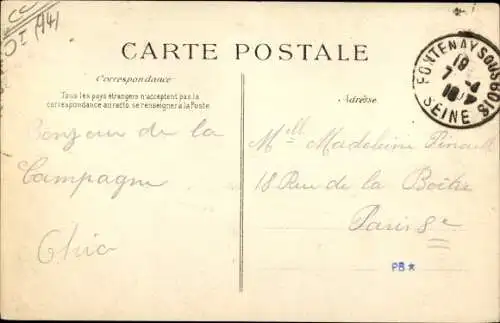 CARTE POSTALE
Correspondance
Tous les pays étrangers n'acceptent pas la
correspondance au recto, se renseigner à la Poste.
Adresse
FONTENAY SOUS BOIS
SEINE
Bonjour de la
Campagne
Mell Madeleine Pinault
18 Rue de la Boëtie
Paris 8e
PB*